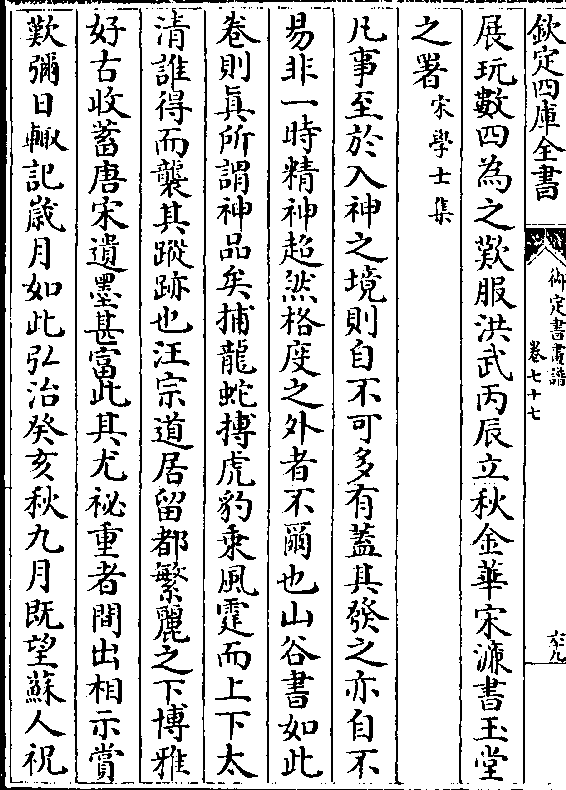 欽定四庫全書
御定書畫譜
卷七十七
六十九
展玩數四為之歎服洪武丙辰立秋金華宋濂書玉堂
之署宋學士集
凡事至於入神之境則自不可多有蓋其發之亦自不
易非一時精神超然格度之外者不爾也山谷書如此
卷則真所謂神品矣捕龍蛇搏虎豹乘風霆而上下太
清誰得而襲其蹤跡也汪宗道居留都繁麗之下博雅
好古收蓄唐宋遺墨甚富此其尤祕重者間出相示賞
歎彌日輙記歲月如此弘治癸亥秋九月既望蘇人祝